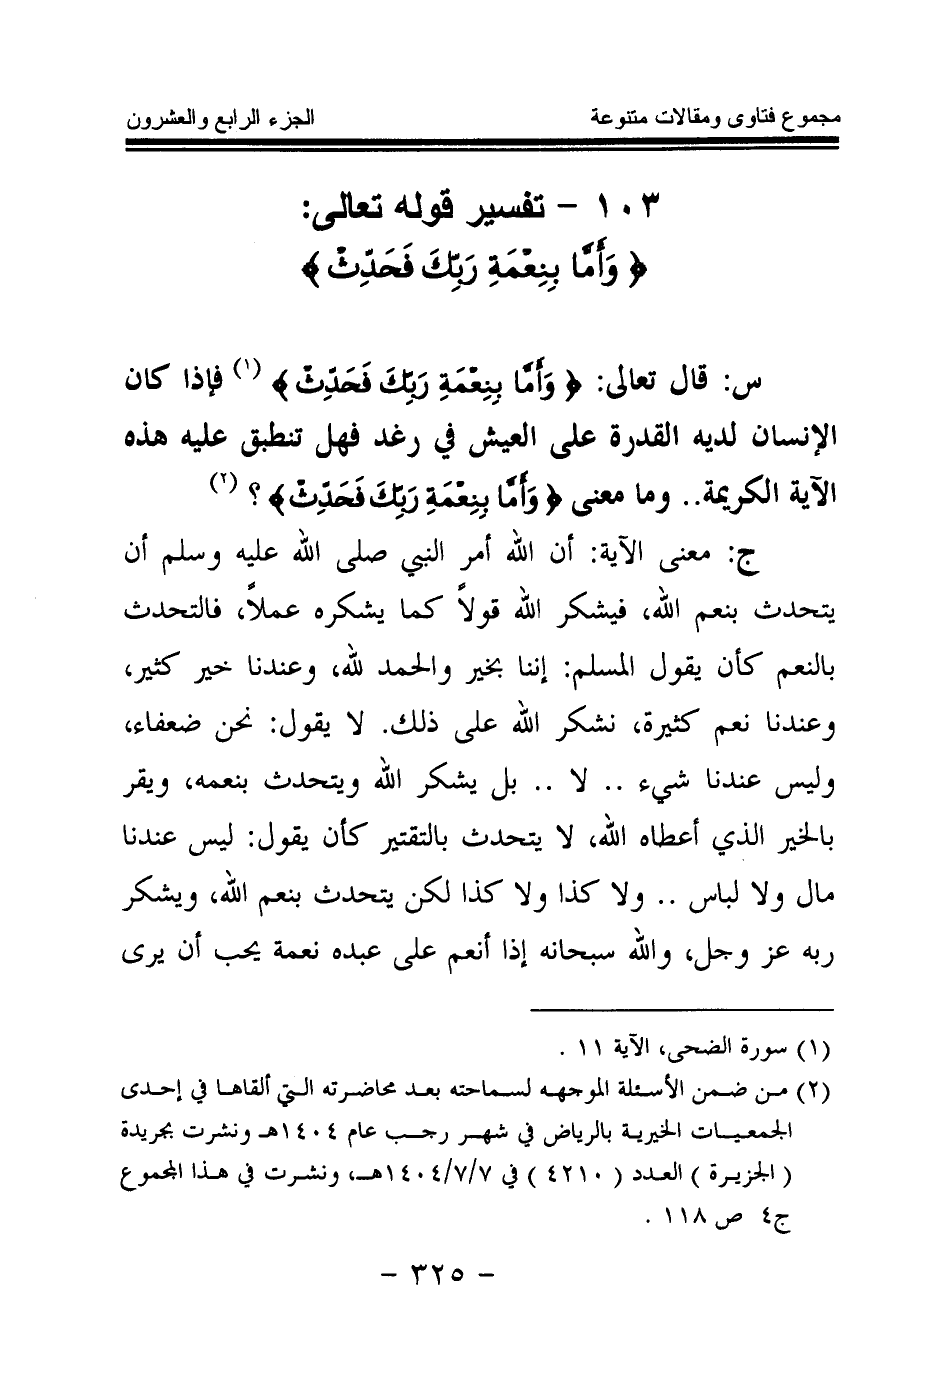 مجموع فتاوى ومقالات متنوعة الجزء الرابع والعشرون
١٠٣ - تفسير قوله تعالى:
﴿ وَأَمَّا بِنِعْمَةِ رَبِّكَ فَحَدِّثْ ﴾
س: قال تعالى: ﴿ وَأَمَّا بِنِعْمَةِ رَبِّكَ فَحَدِّثْ ﴾ (١) فإذا كان
الإنسان لديه القدرة على العيش في رغد فهل تنطبق عليه هذه
الآية الكريمة.. وما معنى ﴿ وَأَمَّا بِنِعْمَةِ رَبِّكَ فَحَدِّثْ ﴾ ؟ (٢)
ج: معنى الآية: أن الله أمر النبي صلى الله عليه وسلم أن
يتحدث بنعم الله، فيشكر الله قولاً كما يشكره عملاً، فالتحدث
بالنعم كأن يقول المسلم: إننا بخير والحمد لله، وعندنا خير كثير،
وعندنا نعم كثيرة، نشكر الله على ذلك. لا يقول: نحن ضعفاء،
وليس عندنا شيء .. لا .. بل يشكر الله ويتحدث بنعمه، ويقر
بالخير الذي أعطاه الله، لا يتحدث بالتقتير كأن يقول: ليس عندنا
مال ولا لباس .. ولا كذا ولا كذا لكن يتحدث بنعم الله، ويشكر
ربه عز وجل، والله سبحانه إذا أنعم على عبده نعمة يحب أن يرى
(١) سورة الضحى، الآية ١١ .
(٢) من ضمن الأسئلة الموجهه لسماحته بعد محاضرته التي ألقاها في إحدى
الجمعيات الخيرية بالرياض في شهر رجب عام ١٤٠٤هـ ونشرت بجريدة
( الجزيرة ) العدد ( ٤٢١٠ ) في ١٤٠٤/٧/٧هـ، ونشرت في هذا المجموع
ج٤ ص ١١٨ .
- ٣٢٥ -